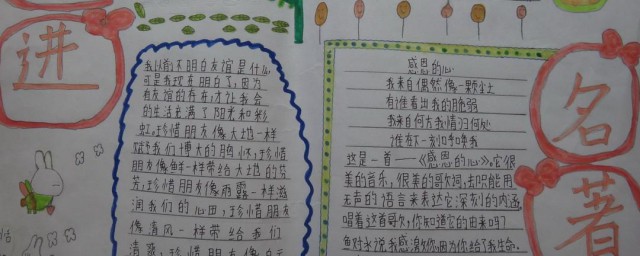 进
我以前不明白友谊是什么
可是我现在明白了,因为
有友谊的存在,才让我会
的生活充满了阳光和彩
虹。珍惜朋友像大地一样
赋予我们博大的胸怀,珍惜
朋友像鲜一样带给大地的芬
芳,珍惜朋友像雨露一样滋
润我们的心田,珍惜朋友
像清风一样带给我们
清爽,珍惜朋友像白云
感恩的心
我来自偶然像一颗尘土
有谁看出我的脆弱
我来自何方我情归何处
谁在下一刻呼唤我
这是一首——《感恩的心》。它很
美的音乐,很美的歌词,却只能用
无声的语言来表达它深刻的内涵
唱着这首歌,你知道它的由来吗?
鱼对水说我感激你,因为你给了我生命。
名
著